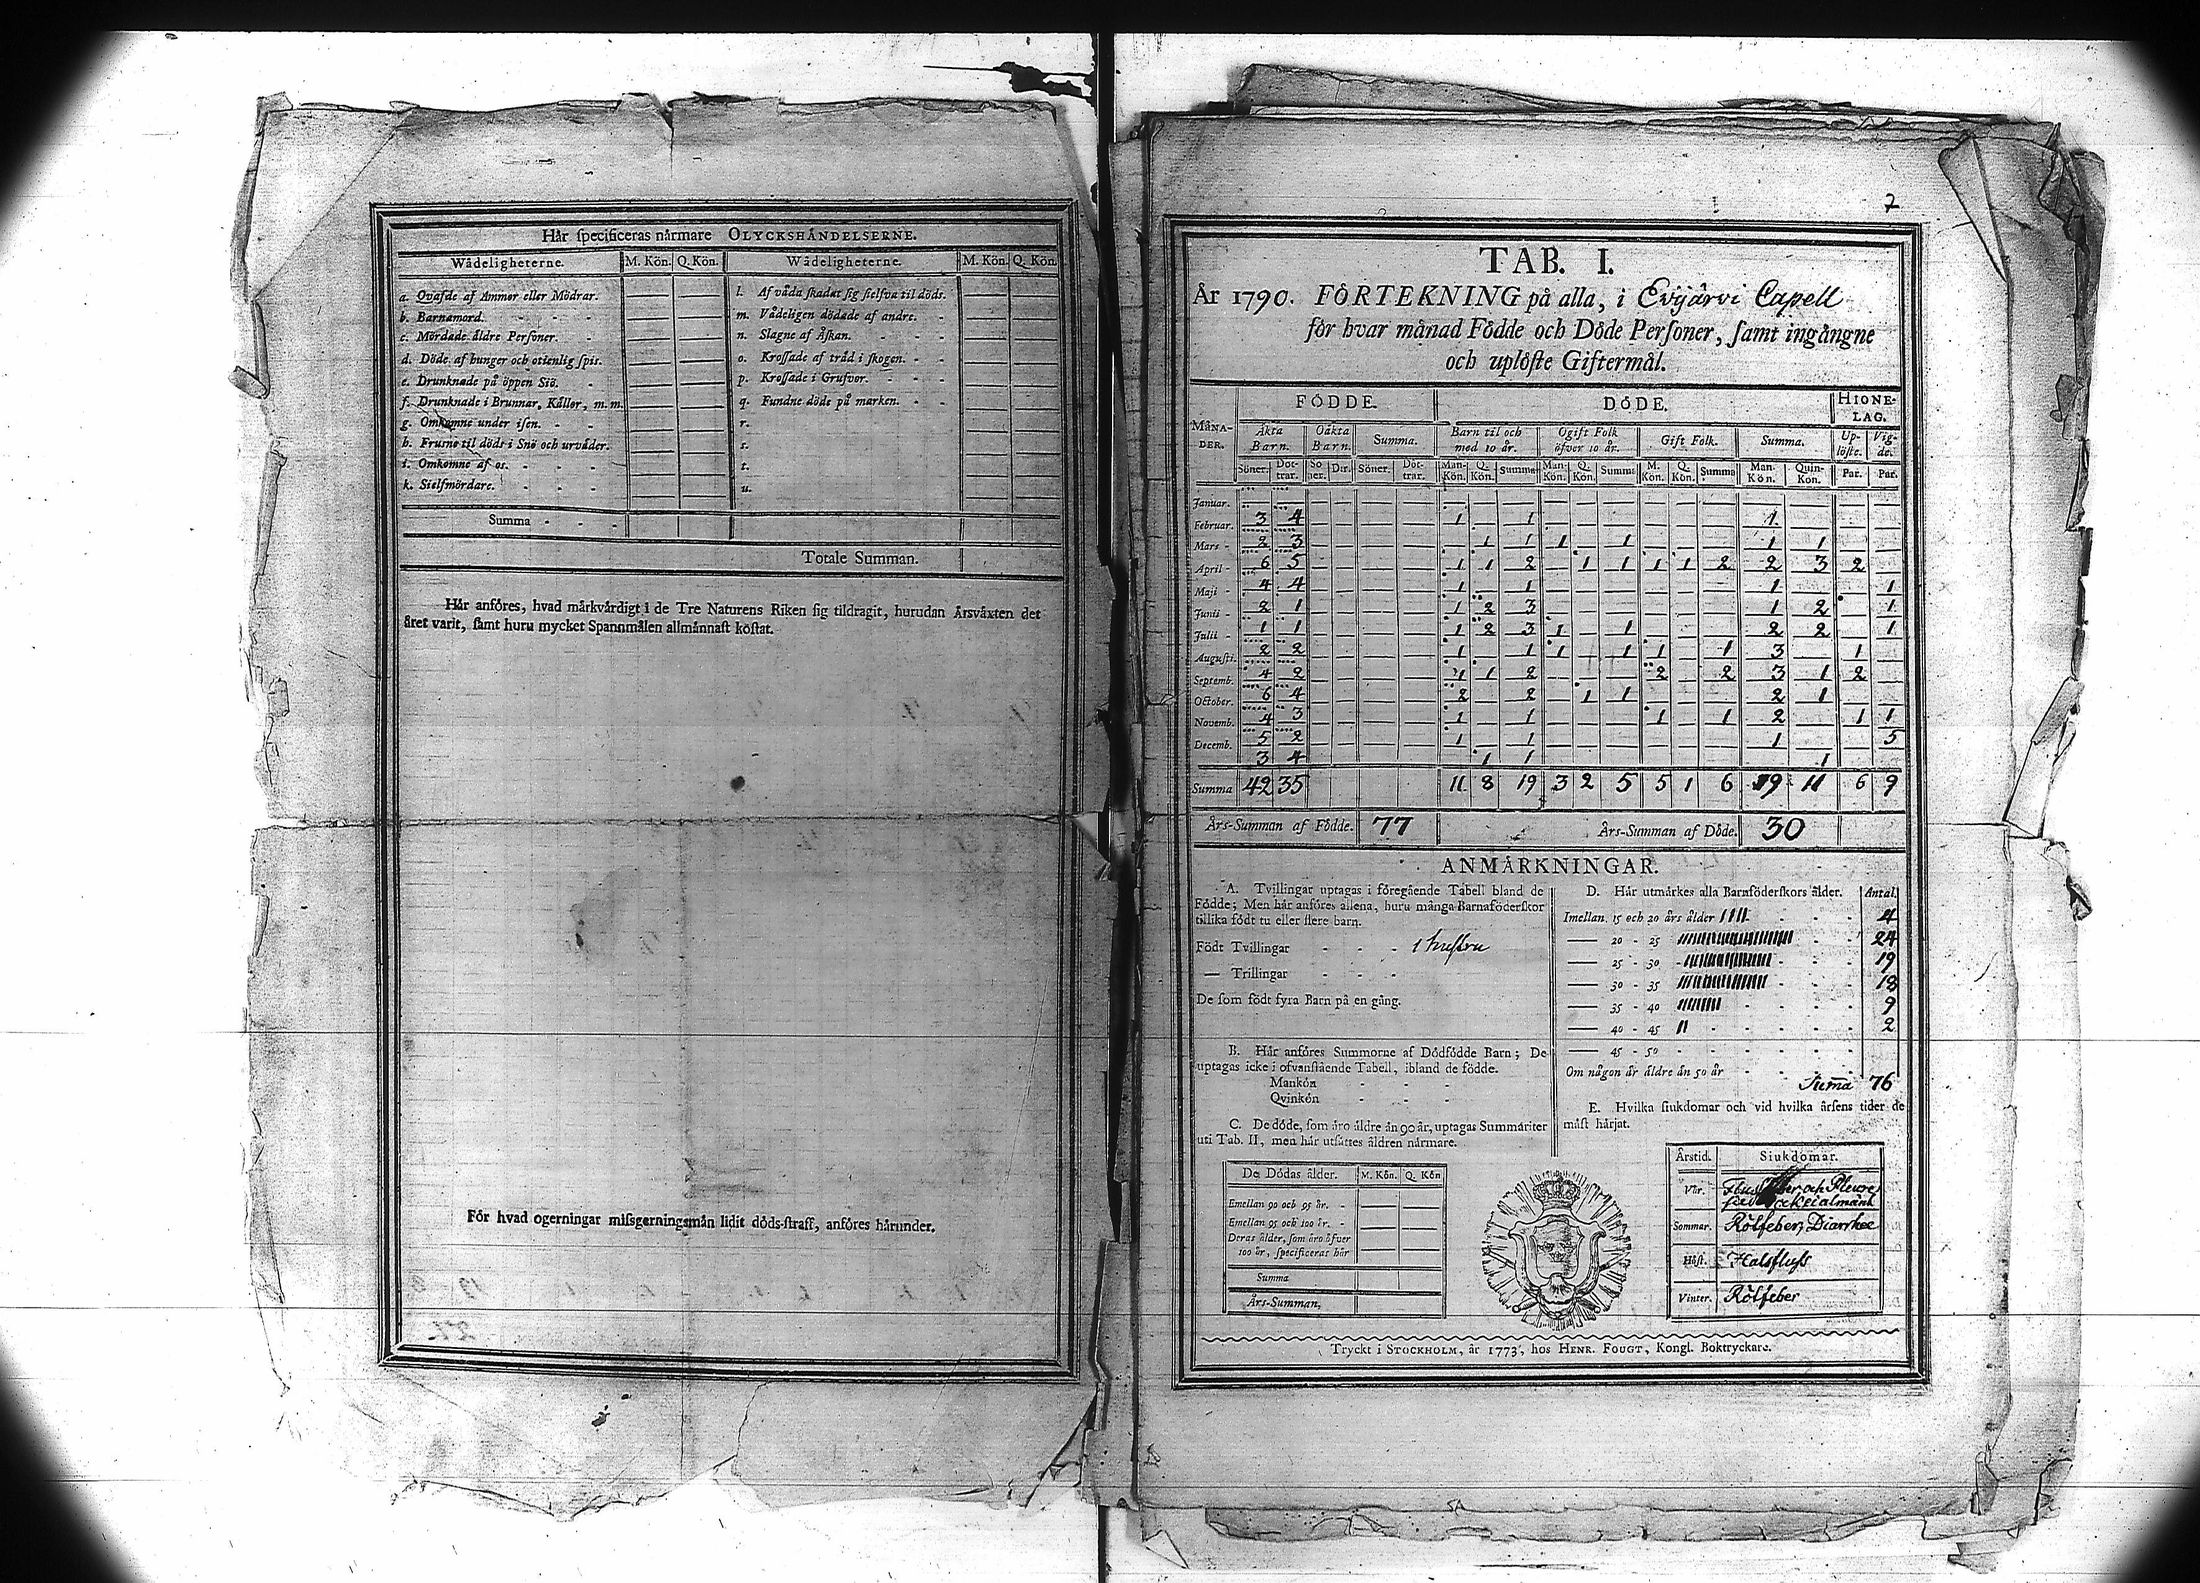 Hår ſpecificeras nårmare OLYCKSHÅNDELSERNE.
Wådeligheterne. M. Kön. Q. Kön. Wådeligheterne. M. Kön. Q. Kön.
a. Qvafde af Ammor eller Mödrar. — — l. Af våda ſkadat ſig ſielfva til döds. — —
b. Barnamord. — — m. Vådeligen dödade af andre. — —
c. Mördade äldre Perſoner. — — n. Slagne af Åſkan. — —
d. Döde af hunger och otienlig ſpis. — — o. Kroſſade af träd i ſkogen. — —
e. Drunknade på öppen Siö. — — p. Kroſſade i Grufvor. — —
f. Drunknade i Brunnar, Källor, m. m. — — q. Fundne döde på marken. — —
g. Omkomne under iſen. — — r. — —
h. Fruſne til döds i Snö och urväder. — — s. — —
i. Omkomne af os. — — t. — —
k. Sielfmördare. — — u. — —
Summa - - -
Totale Summan.
Hår anföres, hvad mårkvårdigt i de Tre Naturens Riken ſig tildragit, hurudan Årsvåxten det
året varit, ſamt huru mycket Spannmålen allmånnaſt koſtat.
För hvad ogerningar miſsgerningsmån lidit döds-ſtraff, anföres hårunder.
7
TAB. I.
År 1790. FÖRTEKNING på alla, i Evijärvi Capell
för hvar månad Födde och Döde Perſoner, ſamt ingångne
och uplöſte Giftermål.
MÅNA-DER. FÖDDE. DÖDE. HIONE-LAG.
Åkta Barn. Oåkta Barn. Summa. Barn til och med 10 år. Ogift Folk öfver 10 år. Gift Folk. Summa. Up-löſte. Vig-de.
Söner. Döt-trar. So ner. Dtr. Söner. Döt-trar. Man-Kön. Q. Kön. Summa Man-Kön. Q. Kön. Summa M. Kön. Q. Kön. Summa Man-Kön. Quin-Kön. Par. Par.
Januar. 3 4 1 1 1
Februar. 2 3 1 1 1 1 1 1
Mars - 6 5 1 1 2 1 1 1 1 2 2 3 2
April - 4 4 1 1 1 1
Maji - 2 1 1 2 3 1 2 1
Junii - 1 1 1 2 3 1 1 2 2 1
Julii - 2 2 1 1 1 1 1 1 3 1
Auguſti. 4 2 1 1 2 2 2 3 1 2
Septemb. 6 4 2 2 1 1 2 1
October. 4 3 1 1 1 1 2 1 1
Novemb. 5 2 1 1 1 5
Decemb. 3 4 1 1 1
Summa 42 35 11 8 19 3 2 5 5 1 6 19 11 6 9
Års-Summan af Födde. 77 Års-Summan af Döde. 30
ANMÅRKNINGAR.
A. Tvillingar uptagas i föregående Tabell bland de
Födde; Men hår anföres allena, huru många Barnaföderſkor
tillika födt tu eller flere barn.
Födt Tvillingar - - - 1 huſtru
— Trillingar - - -
De ſom födt fyra Barn på en gång.
B. Hår anföres Summorne af Dödfödde Barn; De
uptagas icke i ofvanſtående Tabell, ibland de födde.
Mankön - - -
Qvinkön - - -
C. De döde, ſom äro äldre än 90 år, uptagas Summariter
uti Tab. II, men hår utſättes åldren nårmare.
De Dödas ålder. M. Kön. Q. Kön
Emellan 90 och 95 år. - — —
Emellan 95 och 100 år. - — —
Deras ålder, ſom äro öfver
100 år, ſpecificeras hår — —
Summa
Års-Summan.
D. Hår utmårkes alla Barnföderſkors ålder. Antal.
Imellan 15 och 20 års ålder 4
— 20 - 25 24
— 25 - 30 19
— 30 - 35 18
— 35 - 40 9
— 40 - 45 2
— 45 - 50
Om någon är äldre än 50 år
Suma 76
E. Hvilka ſiukdomar och vid hvilka årſens tider de
måſt hårjat.
Årstid. Siukdomar.
Vår. och Pleure
Sommar. Rötfeber, Diarrhee
Höſt. Halsfluſs
Vinter. Rötfeber
Tryckt i STOCKHOLM, år 1773, hos HENR. FOUGT, Kongl. Boktryckare.